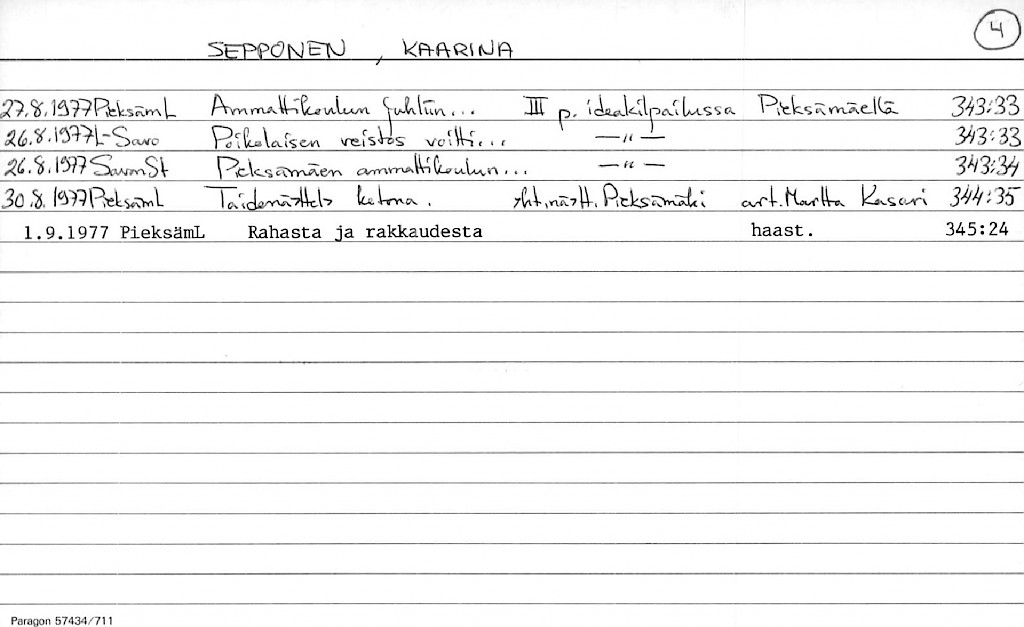 4
SEPPONEN, KAARINA
27.8.1977 PieksämL Ammattikoulun juhliin... III p. ideakilpailussa Pieksämäellä 343:33
26.8.1977 L-Savo Poikolaisen veistos voitti... —"— 343:33
26.8.1977 SavonSt Pieksämäen ammattikoulun... —"— 343:34
30.8.1977 PieksämL Taidenäyttely ketona. yht.näytt. Pieksämäki art. Martta Kasari 344:35
1.9.1977 PieksämL Rahasta ja rakkaudesta haast. 345:24
Paragon 57434/711